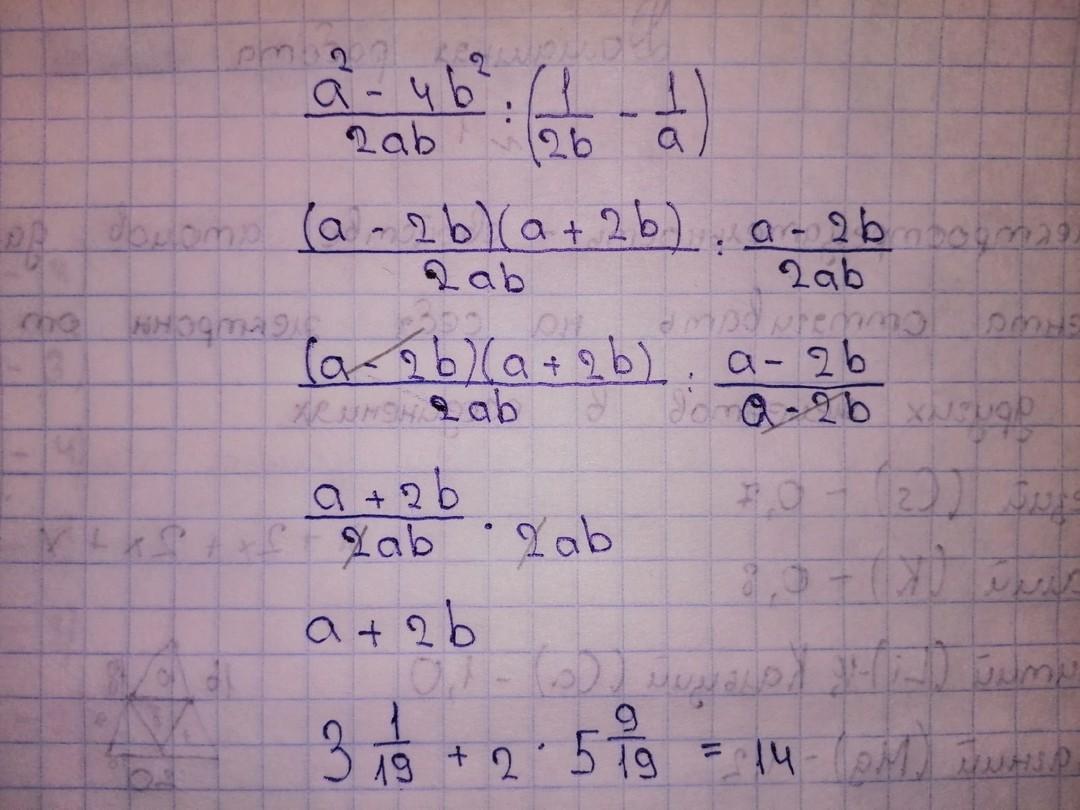 a² - 4b² / 2ab : (1/2b - 1/a)
(a - 2b)(a + 2b) / 2ab : a - 2b / 2ab
(a - 2b)(a + 2b) / 2ab : a - 2b / a - 2b
a + 2b / 2ab · 2ab
a + 2b
3 1/19 + 2 · 5 9/19 = 14